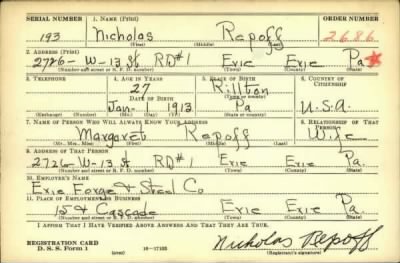 SERIAL NUMBER 1. NAME (Print) ORDER NUMBER
193 Nicholas Repoff 2686
(First) (Middle) (Last)
2. ADDRESS (Print)
2726- W-13 St RD#1 Erie Erie Pa
(Number and street or R. F. D. number) (Town) (County) (State)
3. TELEPHONE 4. AGE IN YEARS 5. PLACE OF BIRTH 6. COUNTRY OF CITIZENSHIP
27 Rillton
DATE OF BIRTH (Town or county)
Jan- 1 1913 Pa U.S.A.
(Exchange) (Number) (Mo.) (Day) (Yr.) (State or country)
7. NAME OF PERSON WHO WILL ALWAYS KNOW YOUR ADDRESS 8. RELATIONSHIP OF THAT PERSON
Margaret Repoff Wife
(Mr., Mrs., Miss) (First) (Middle) (Last)
9. ADDRESS OF THAT PERSON
2726 W-13 St RD#1 Erie Erie Pa.
(Number and street or R. F. D. number) (Town) (County) (State)
10. EMPLOYER'S NAME
Erie Forge & Steel Co
11. PLACE OF EMPLOYMENT OR BUSINESS
15 & Cascade Erie Erie Pa.
(Number and street or R. F. D. number) (Town) (County) (State)
I AFFIRM THAT I HAVE VERIFIED ABOVE ANSWERS AND THAT THEY ARE TRUE.
REGISTRATION CARD
D. S. S. Form 1 (over) 16-17105 Nicholas Repoff
(Registrant's signature)